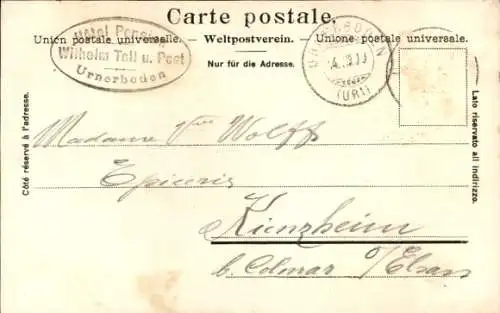 Carte postale.
Union postale universelle. – Weltpostverein. – Unione postale universale.
Nur für die Adresse.
Hôtel Pension
Wilhelm Tell u. Post
Urnerboden
(URI)
Côté réservé à l'adresse.
Lato riservato all indirizzo.
Madame Vve Wolff
Epicerie
Kienzheim
b. Colmar o/Elsass